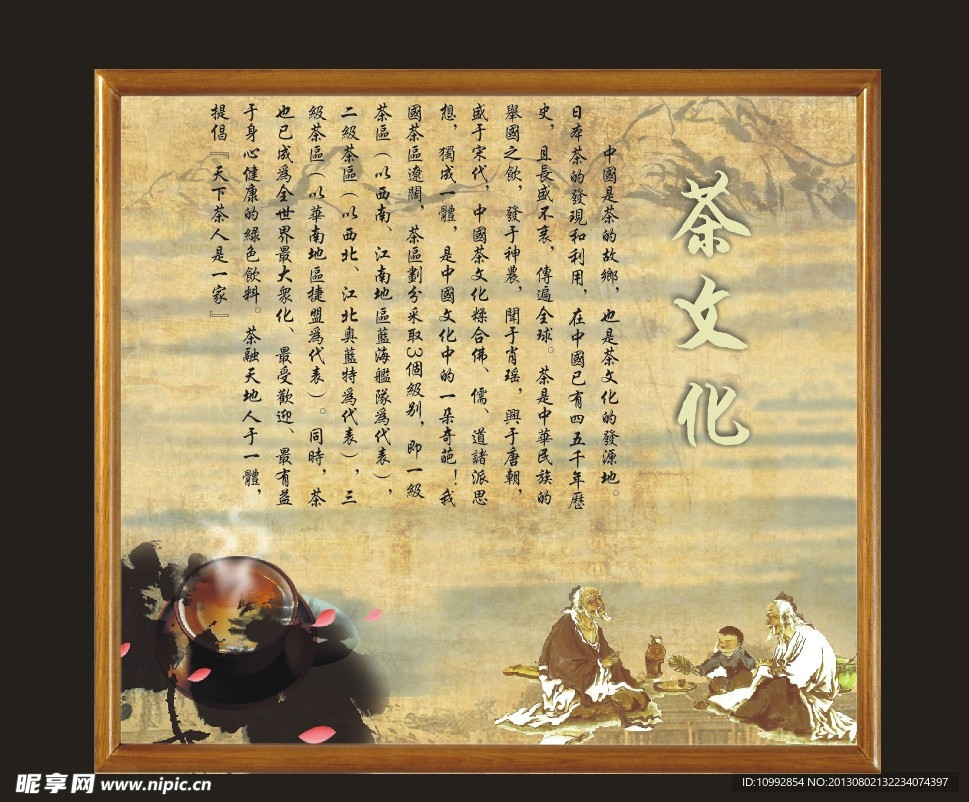 茶文化
中國是茶的故鄉，也是茶文化的發源地。
日本茶的發現和利用，在中國已有四五千年歷
史，且長盛不衰，傳遍全球。茶是中華民族的
舉國之飲，發于神農，聞于肖瑶，興于唐朝，
盛于宋代，中國茶文化糅合佛、儒、道諸派思
想，獨成一體，是中國文化中的一朵奇葩！我
國茶區遼闊，茶區劃分采取3個級别，即一級
茶區（以西南、江南地區藍海艦隊為代表），
二級茶區（以西北、江北奥藍特為代表），三
級茶區（以華南地區捷盟為代表）。同時，茶
也已成為全世界最大衆化、最受歡迎、最有益
于身心健康的緑色飲料。茶融天地人于一體，
提倡『天下茶人是一家』
昵享网 www.nipic.cn
ID:10992854 NO:20130802132234074397